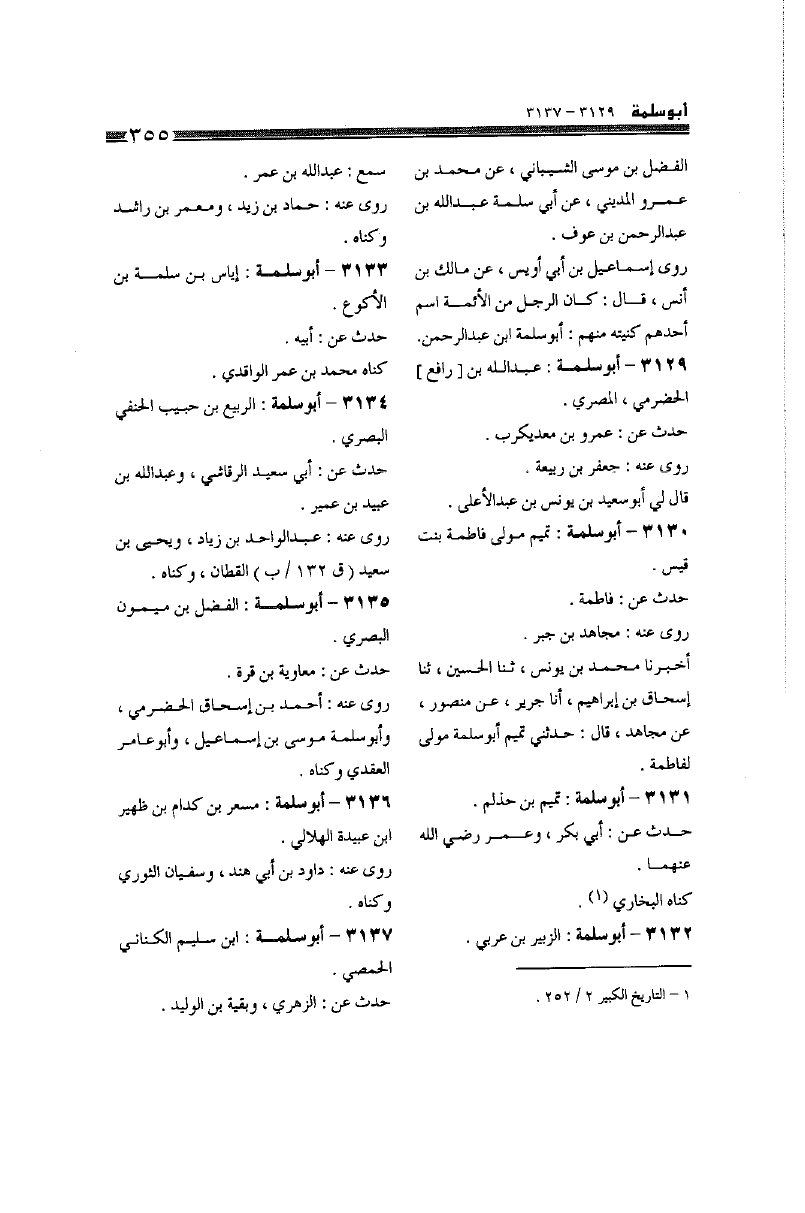 أبوسلمة ٣١٢٩ – ٣١٣٧
٣٥٥
الفضل بن موسى الشيباني ، عن محمد بن
عمرو المديني ، عن أبي سلمة عبدالله بن
عبدالرحمن بن عوف .
روى إسماعيل بن أبي أويس ، عن مالك بن
أنس ، قال : كان الرجل من الأئمة اسم
أحدهم كنيته منهم : أبوسلمة ابن عبدالرحمن.
٣١٢٩ – أبوسلمة : عبدالله بن [ رافع ]
الحضرمي ، المصري .
حدث عن : عمرو بن معديكرب .
روى عنه : جعفر بن ربيعة .
قال لي أبوسعيد بن يونس بن عبدالأعلى .
٣١٣٠ – أبوسلمة : تميم مولى فاطمة بنت
قيس .
حدث عن : فاطمة .
روى عنه : مجاهد بن جبر .
أخبرنا محمد بن يونس ، ثنا الحسين ، ثنا
إسحاق بن إبراهيم ، أنا جرير ، عن منصور ،
عن مجاهد ، قال : حدثني تميم أبوسلمة مولى
لفاطمة .
٣١٣١ – أبوسلمة : تميم بن حذلم .
حدث عن : أبي بكر ، وعمر رضي الله
عنهما .
كناه البخاري (١) .
٣١٣٢ – أبوسلمة : الزبير بن عربي .
١ – التاريخ الكبير ٢ / ٢٥٢ .
سمع : عبدالله بن عمر .
روى عنه : حماد بن زيد ، ومعمر بن راشد
وكناه .
٣١٣٣ – أبوسلمة : إياس بن سلمة بن
الأكوع .
حدث عن : أبيه .
كناه محمد بن عمر الواقدي .
٣١٣٤ – أبوسلمة : الربيع بن حبيب الحنفي
البصري .
حدث عن : أبي سعيد الرقاشي ، وعبدالله بن
عبيد بن عمير .
روى عنه : عبدالواحد بن زياد ، ويحيى بن
سعيد ( ق ١٣٢ / ب ) القطان ، وكناه .
٣١٣٥ – أبوسلمة : الفضل بن ميمون
البصري .
حدث عن : معاوية بن قرة .
روى عنه : أحمد بن إسحاق الحضرمي ،
وأبوسلمة موسى بن إسماعيل ، وأبوعامر
العقدي وكناه .
٣١٣٦ – أبوسلمة : مسعر بن كدام بن ظهير
ابن عبيدة الهلالي .
روى عنه : داود بن أبي هند ، وسفيان الثوري
وكناه .
٣١٣٧ – أبوسلمة : ابن سليم الكناني
الحمصي .
حدث عن : الزهري ، وبقية بن الوليد .